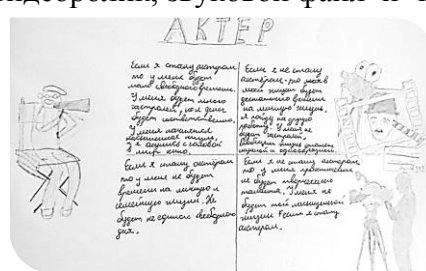 звуковой файл и
АКТЕР
Если я стану актером
то у меня будет
мало свободного времени.
У меня будет много
будет
У меня начнётся
жизнь,
я окунусь с головой
в мир кино.
Если я стану актёром
то у меня не будет
времени на личную и
семейную жизнь. Не
будет ни одного свободного
дня.
Если я не стану
актёром, то у меня в
моей жизни будет
достаточно времени
на личную жизнь,
я пойду на другую
работу. У меня не
будет
жизнь станет
скучной и однообразной.
Если я не стану актером
то у меня
не будет творческого
У меня не
будет той насыщенной
жизни если я стану
актером.